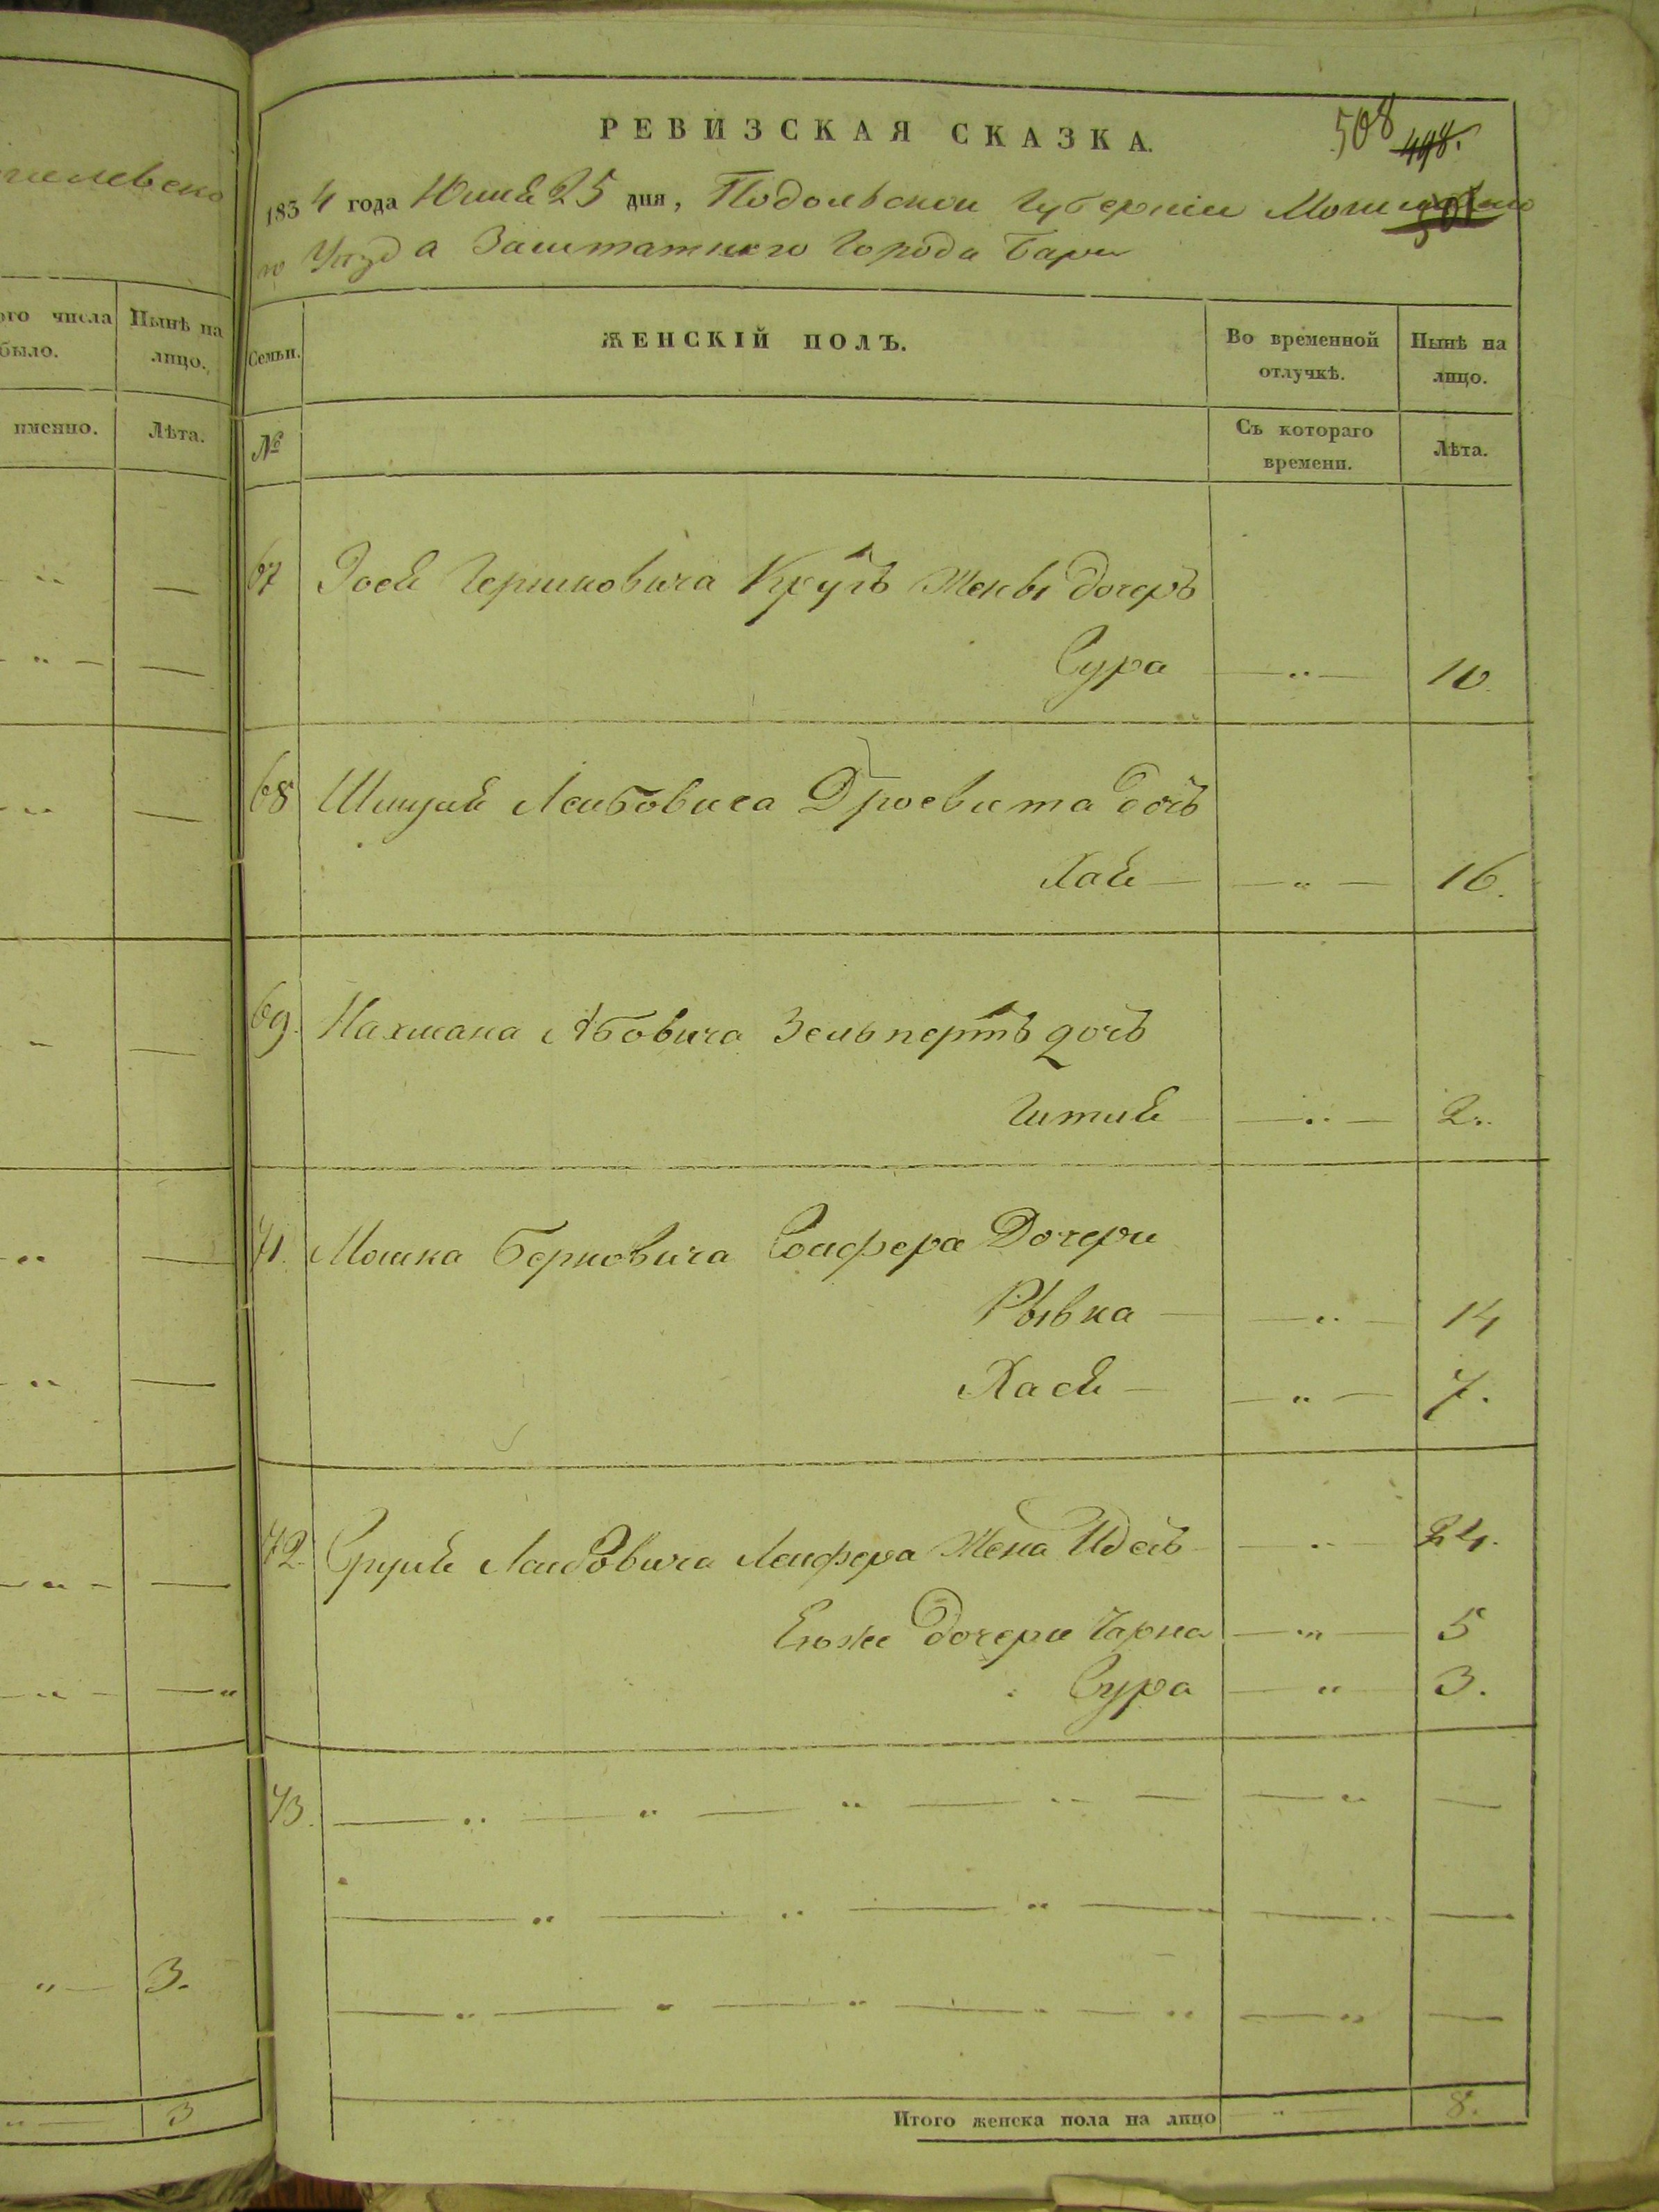 гилевско
ого числа
было.
Нынѣ на
лицо.
именно.
Лѣта.
3.
3
РЕВИЗСКАЯ СКАЗКА.
508
498.
501
1834 года Июня 25 дня, Подольской Губерніи Могилевско
го Уѣзда Заштатнаго Города Бара
Семьи.
ЖЕНСКІЙ ПОЛЪ.
Во временной
отлучкѣ.
Нынѣ на
лицо.
№
Съ котораго
времени.
Лѣта.
67 Іося Гершковича Кругъ Жены дочерь
Сура 10.
68 Лейбовича дочь
Хая 16.
69. Нахмана Абовича Зельпертъ дочь
Гитля 2.
71. Мошка Берковича Сойфера Дочери
Рывка 14
Хася 7.
72. Сруля Лейбовича Лейфера Жена Идесь 24.
Ево же дочери Чарна 5
Сура 3.
73.
Итого женска пола на лицо 8.